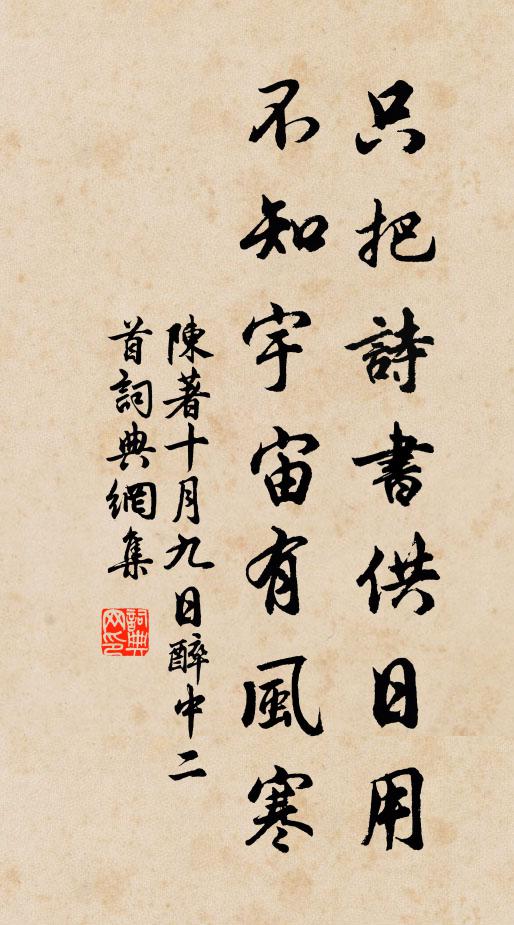 只把詩書供日用
不知宇宙有風寒
陳著十月九日醉中二
首詞典網集
詞典
网印